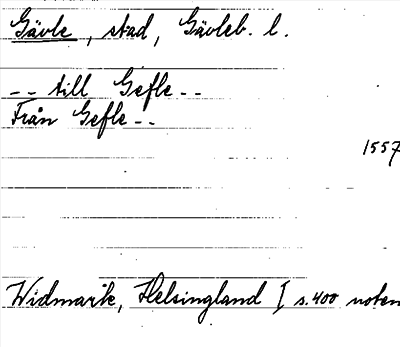 Gävle, stad, Gävleb. l.
-- till Gefle --
Från Gefle --
1557
Widmark, Helsingland I s. 400 noten